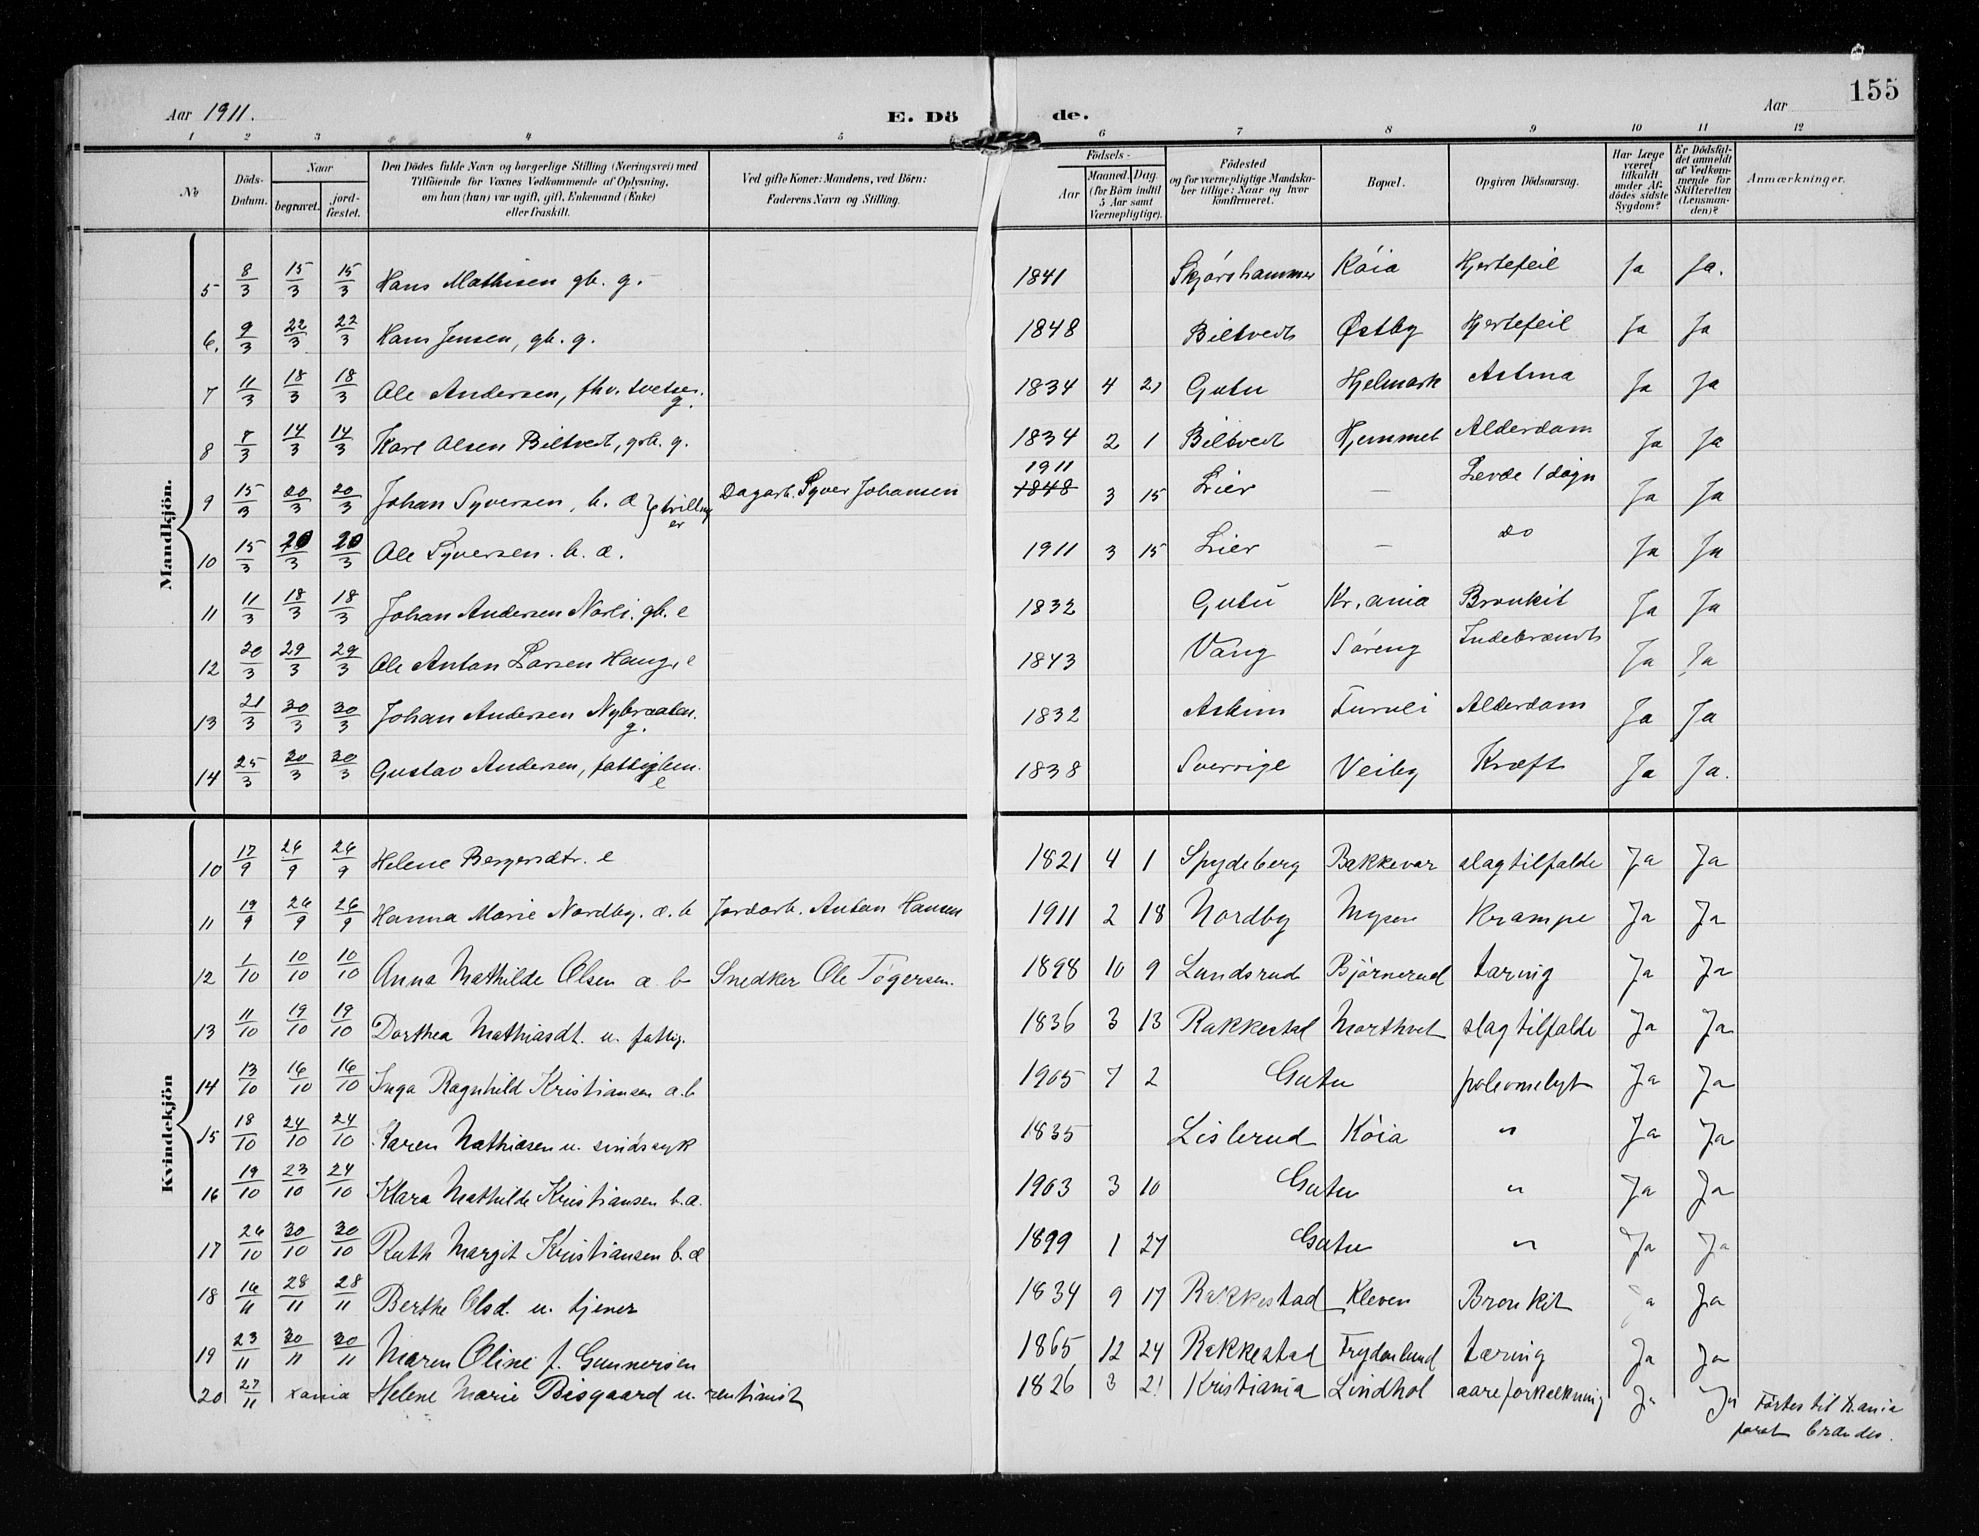 155
Aar 1911. E. Dö de. Aar
1 2 3 4 5 6 7 8 9 10 11 12
No Döds-Datum. Naar begravet. jord-fæstet. Den Dödes fulde Navn og borgerlige Stilling (Næringsvei) med Tilföiende for Voxnes Vedkommende af Oplysning, om han (hun) var ugift, gift, Enkemand (Enke) eller fraskilt. Ved gifte Koner: Mandens, ved Börn: Faderens Navn og Stilling. Födsels- Aar Maaned. Dag. (for Börn indtil 5 Aar samt Værnepligtige). Födested og for værnepligtige Mandskaber tillige: Naar og hvor konfirmeret. Bopæl. Opgiven Dödsaarsag. Har Læge været tilkaldt under Afdödes sidste Sygdom? Er Dödsfaldet anmeldt af Vedkommende for Skifteretten (Lensmanden)? Anmærkninger.
Mandkjön.
5 8/3 15/3 15/3 Hans Mathisen gb. g. 1841 Skjørshammer Kóia Hjertefeil Ja Ja.
6. 9/3 22/3 22/3 Hans Jensen, gb. g. 1848 Biltvedt Østby Hjertefeil Ja Ja
7 11/3 18/3 18/3 Ole Andersen, fhv. g. 1834 4 21 Gutu Hjelmark Astma Ja Ja
8 7/3 14/3 14/3 Karl Olsen Biltvedt, grb. g. 1834 2 1 Biltvedt Hjemmet Alderdom Ja Ja
9 15/3 20/3 20/3 Johan Syversen, b. a } tvillinger Dagarb. Syver Johansen 1911 1848 3 15 Lier – Levde 1 døgn Ja Ja
10 15/3 20/3 20/3 Ole Syversen. b. a. 1911 3 15 Lier – do Ja Ja
11 11/3 18/3 18/3 Johan Andersen Norli. gb. e 1832 Gutu Kr.ania Bronkit Ja Ja
12 20/3 29/3 29/3 Ole Anton Larsen Haug, e 1843 Vang Sóreng Indebrændt Ja Ja
13 21/3 30/3 30/3 Johan Andersen Nybraaten. g. 1832 Askim Furuli Alderdom Ja Ja
14 25/3 30/3 30/3 Gustav Andersen, fattiglem. e 1838 Sverrige Veiby Kræft Ja Ja.
Kvindekjön
10 17/9 26/9 26/9 Helene Bergersdtr. e 1821 4 1 Spydeberg Bakkevar slagtilfalde Ja Ja
11 19/9 26/9 26/9 Hanna Marie Nordby. a. b Jordarb. Anton Hansen 1911 2 18 Nordby Mysen Krampe Ja Ja
12 1/10 10/10 10/10 Anna Mathilde Olsen a b Snedker Ole Tøgersen. 1898 10 9 Lundsrud Bjórnerud tæring Ja Ja
13 11/10 19/10 19/10 Dorthea Mathiasdt. u. fattig. 1836 3 13 Rakkestad Morthvet slagtilfalde Ja Ja
14 13/10 16/10 16/10 Inga Ragnhild Kristiansen a. b 1905 7 2 Gutu poleomelyt Ja Ja
15 18/10 24/10 24/10 Karen Mathiasen u. sindssyk 1835 Lislerud Kóia " Ja Ja
16 19/10 23/10 24/10 Klara Mathilde Kristiansen b. a. 1903 3 10 Gutu " Ja Ja
17 26/10 30/10 30/10 Ruth Margit Kristiansen b. a 1899 1 27 Gutu " Ja Ja
18 16/11 28/11 28/11 Berthe Olsd. u. tjener 1834 9 17 Rakkestad Kleven Bronkit Ja Ja
19 23/11 30/11 30/11 Maren Oline f. Gunnersen 1865 12 24 Rakkestad Frydenlund tæring Ja Ja
20 27/11 xania Helene Marie Bisgaard u. rentianist 1826 3 21 Kristiania Lindhol aareforkalkning Ja Ja Førtes til Xania
forat brændes.